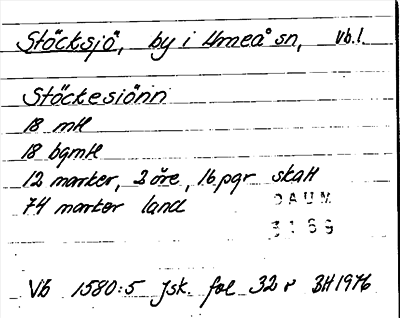 Stöcksjö, by i Umeå sn, Vb.l.
Stöckesiönn
18 mtl
18 bgmtl
12 marker, 2 öre, 16 pgr skatt
74 marker land
DAUM
3169
Vb 1580:5 Jsk. fol 32 r BH 1976